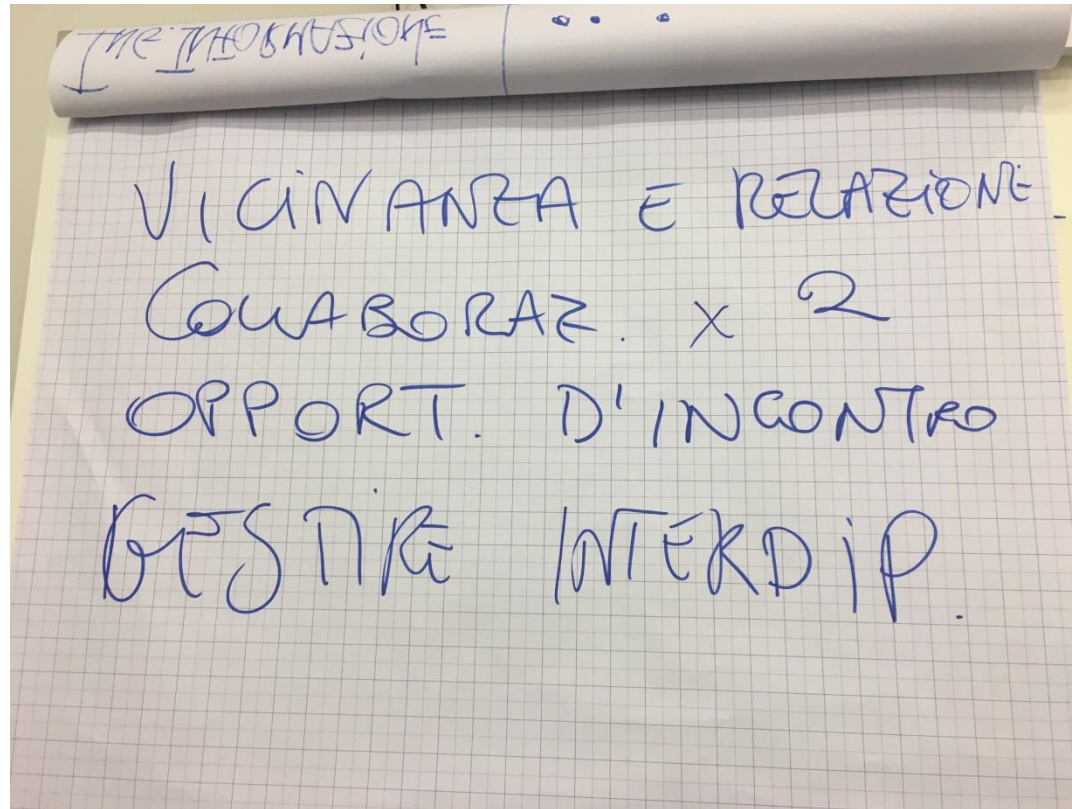 VICINANZA E RELAZIONE.
COLLABORAZ. x 2
OPPORT. D'INCONTRO
GESTIRE INTERDIP.